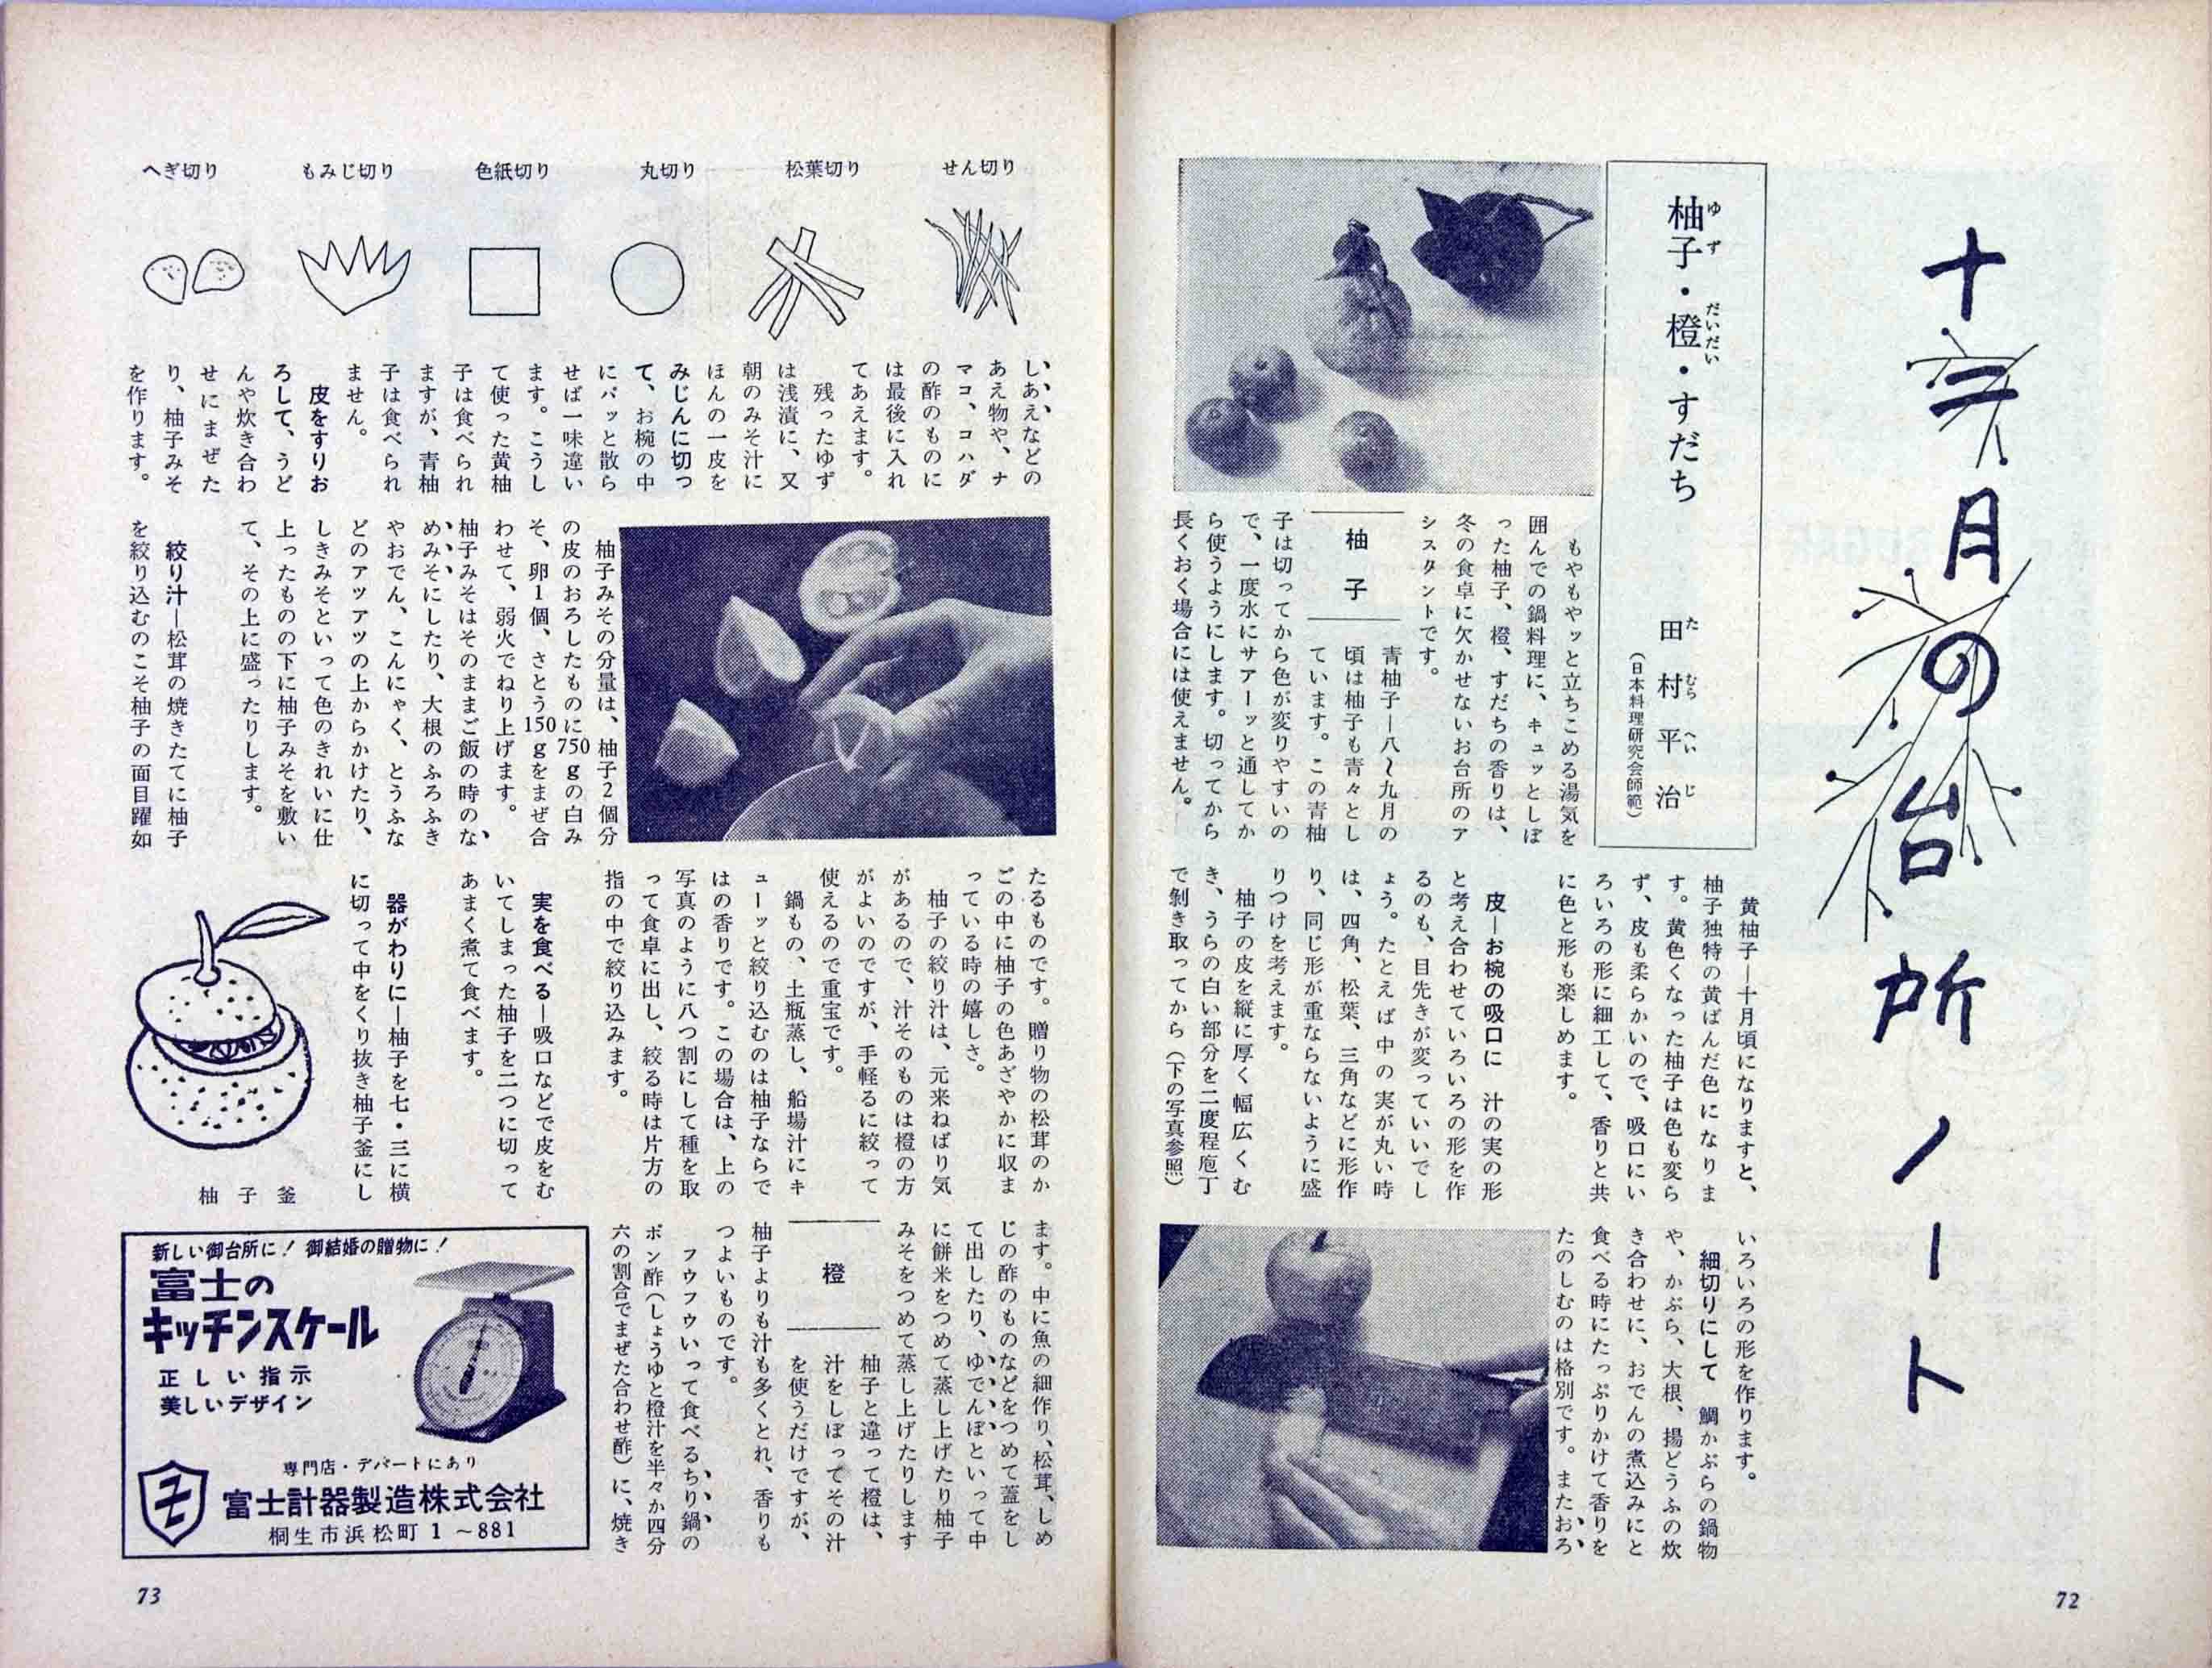 十二月の台所ノート
柚子・橙・すだち
ゆず
だいだい
田村平治
たむらへいじ
(日本料理研究会師範)
もやもやッと立ちこめる湯気を
囲んでの鍋料理に、キュッとしぼ
った柚子、橙、すだちの香りは、
冬の食卓に欠かせないお台所のア
シスタントです。
柚子
青柚子―八〜九月の
頃は柚子も青々とし
ています。この青柚
子は切ってから色が変りやすいの
で、一度水にサアーッと通してか
ら使うようにします。切ってから
長くおく場合には使えません。
黄柚子―十月頃になりますと、
柚子独特の黄ばんだ色になりま
す。黄色くなった柚子は色も変ら
ず、皮も柔らかいので、吸口にい
ろいろの形に細工して、香りと共
に色と形も楽しめます。
皮―お椀の吸口に　汁の実の形
と考え合わせていろいろの形を作
るのも、目先きが変っていいでし
ょう。たとえば中の実が丸い時
は、四角、松葉、三角などに形作
り、同じ形が重ならないように盛
りつけを考えます。
柚子の皮を縦に厚く幅広くむ
き、うらの白い部分を二度程庖丁
で剝き取ってから(下の写真参照)
いろいろの形を作ります。
細切りにして　鯛かぶらの鍋物
や、かぶら、大根、揚どうふの炊
き合わせに、おでんの煮込みにと
食べる時にたっぷりかけて香りを
たのしむのは格別です。またおろ
72
せん切り
松葉切り
丸切り
色紙切り
もみじ切り
へぎ切り
しあえなどの
あえ物や、ナ
マコ、コハダ
の酢のものに
は最後に入れ
てあえます。
残ったゆず
は浅漬に、又
朝のみそ汁に
ほんの一皮を
みじんに切っ
て、お椀の中
にパッと散ら
せば一味違い
ます。こうし
て使った黄柚
子は食べられ
ますが、青柚
子は食べられ
ません。
皮をすりお
ろして、うど
んや炊き合わ
せにまぜた
り、柚子みそ
を作ります。
柚子みその分量は、柚子2個分
の皮のおろしたものに750gの白み
そ、卵1個、さとう150gをまぜ合
わせて、弱火でねり上げます。
柚子みそはそのままご飯の時のな
めみそにしたり、大根のふろふき
やおでん、こんにゃく、とうふな
どのアツアツの上からかけたり、
しきみそといって色のきれいに仕
上ったものの下に柚子みそを敷い
て、その上に盛ったりします。
絞り汁―松茸の焼きたてに柚子
を絞り込むのこそ柚子の面目躍如
たるものです。贈り物の松茸のか
ごの中に柚子の色あざやかに収ま
っている時の嬉しさ。
柚子の絞り汁は、元来ねばり気
があるので、汁そのものは橙の方
がよいのですが、手軽るに絞って
使えるので重宝です。
鍋もの、土瓶蒸し、船場汁にキ
ューッと絞り込むのは柚子ならで
はの香りです。この場合は、上の
写真のように八つ割にして種を取
って食卓に出し、絞る時は片方の
指の中で絞り込みます。
実を食べる―吸口などで皮をむ
いてしまった柚子を二つに切って
あまく煮て食べます。
器がわりに―柚子を七・三に横
に切って中をくり抜き柚子釜にし
柚子釜
ます。中に魚の細作り、松茸、しめ
じの酢のものなどをつめて蓋をし
て出したり、ゆでんぽといって中
に餅米をつめて蒸し上げたり柚子
みそをつめて蒸し上げたりします
橙
柚子と違って橙は、
汁をしぼってその汁
を使うだけですが、
柚子よりも汁も多くとれ、香りも
つよいものです。
フウフウいって食べるちり鍋の
ポン酢(しょうゆと橙汁を半々か四分
六の割合でまぜた合わせ酢)に、焼き
新しい御台所に! 御結婚の贈物に!
富士の
キッチンスケール
正しい指示
美しいデザイン
専門店・デパートにあり
富士計器製造株式会社
桐生市浜松町1〜881
73